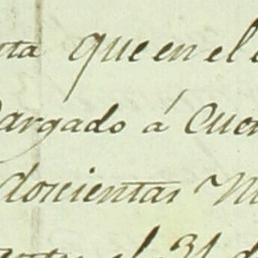 que en el
cargado á Cuen
doscientas M
el 31 d